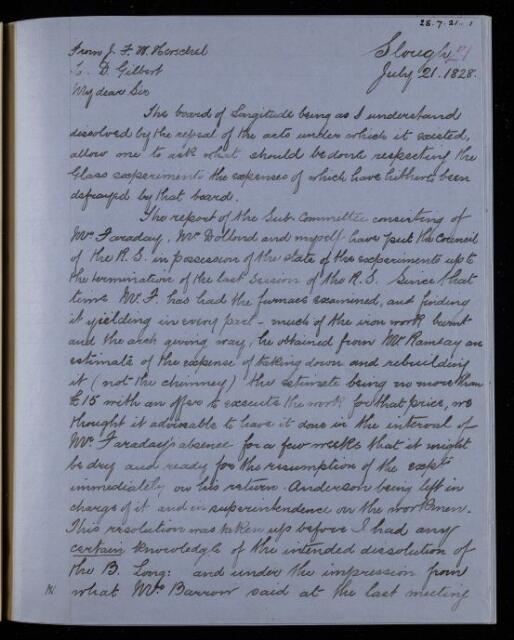 28.7.21. 1
From J. F. W. Herschel
Slough
To D Gilbert
July 21. 1828.
My dear Sir
The board of Longitude being as I understand
dissolved by the repeal of the acts under which it existed,
allow me to ask what should be done respecting the
Glass experiments the expenses of which have hitherto been
defrayed by that board.
The report of the Sub-Committee consisting of
Mr. Faraday, Mr. Dollond and myself have put the Council
of the R. S. in possession of the state of the experiments up to
the termination of the last Session of the R. S. Since that
time Mr. F. has had the furnace examined, and finding
it yielding in every part - much of the iron work burnt
and the arch giving way, he obtained from Mr. Ramsay an
estimate of the expense of taking down and rebuilding
it (not the chimney) the estimate being no more than
£15 with an offer to execute the work for that price, we
thought it advisable to have it done in the interval of
Mr. Faraday's absence for a few weeks that it might
be dry and ready for the resumption of the expts
immediately on his return - Anderson being left in
charge of it and in superintendence on the workmen.
This resolution was taken up before I had any
certain knowledge of the intended dissolution of
the B. Long: and under the impression from
what Mr. Barrow said at the last meeting